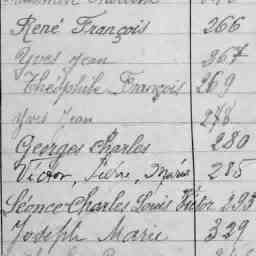 René François 266
Yves Jean 267
Théophile François 269
Yves Jean 278
Georges Charles 280
Victor, Pierre, Marie 285
Léonce Charles Louis Victor 293
Joseph Marie 329